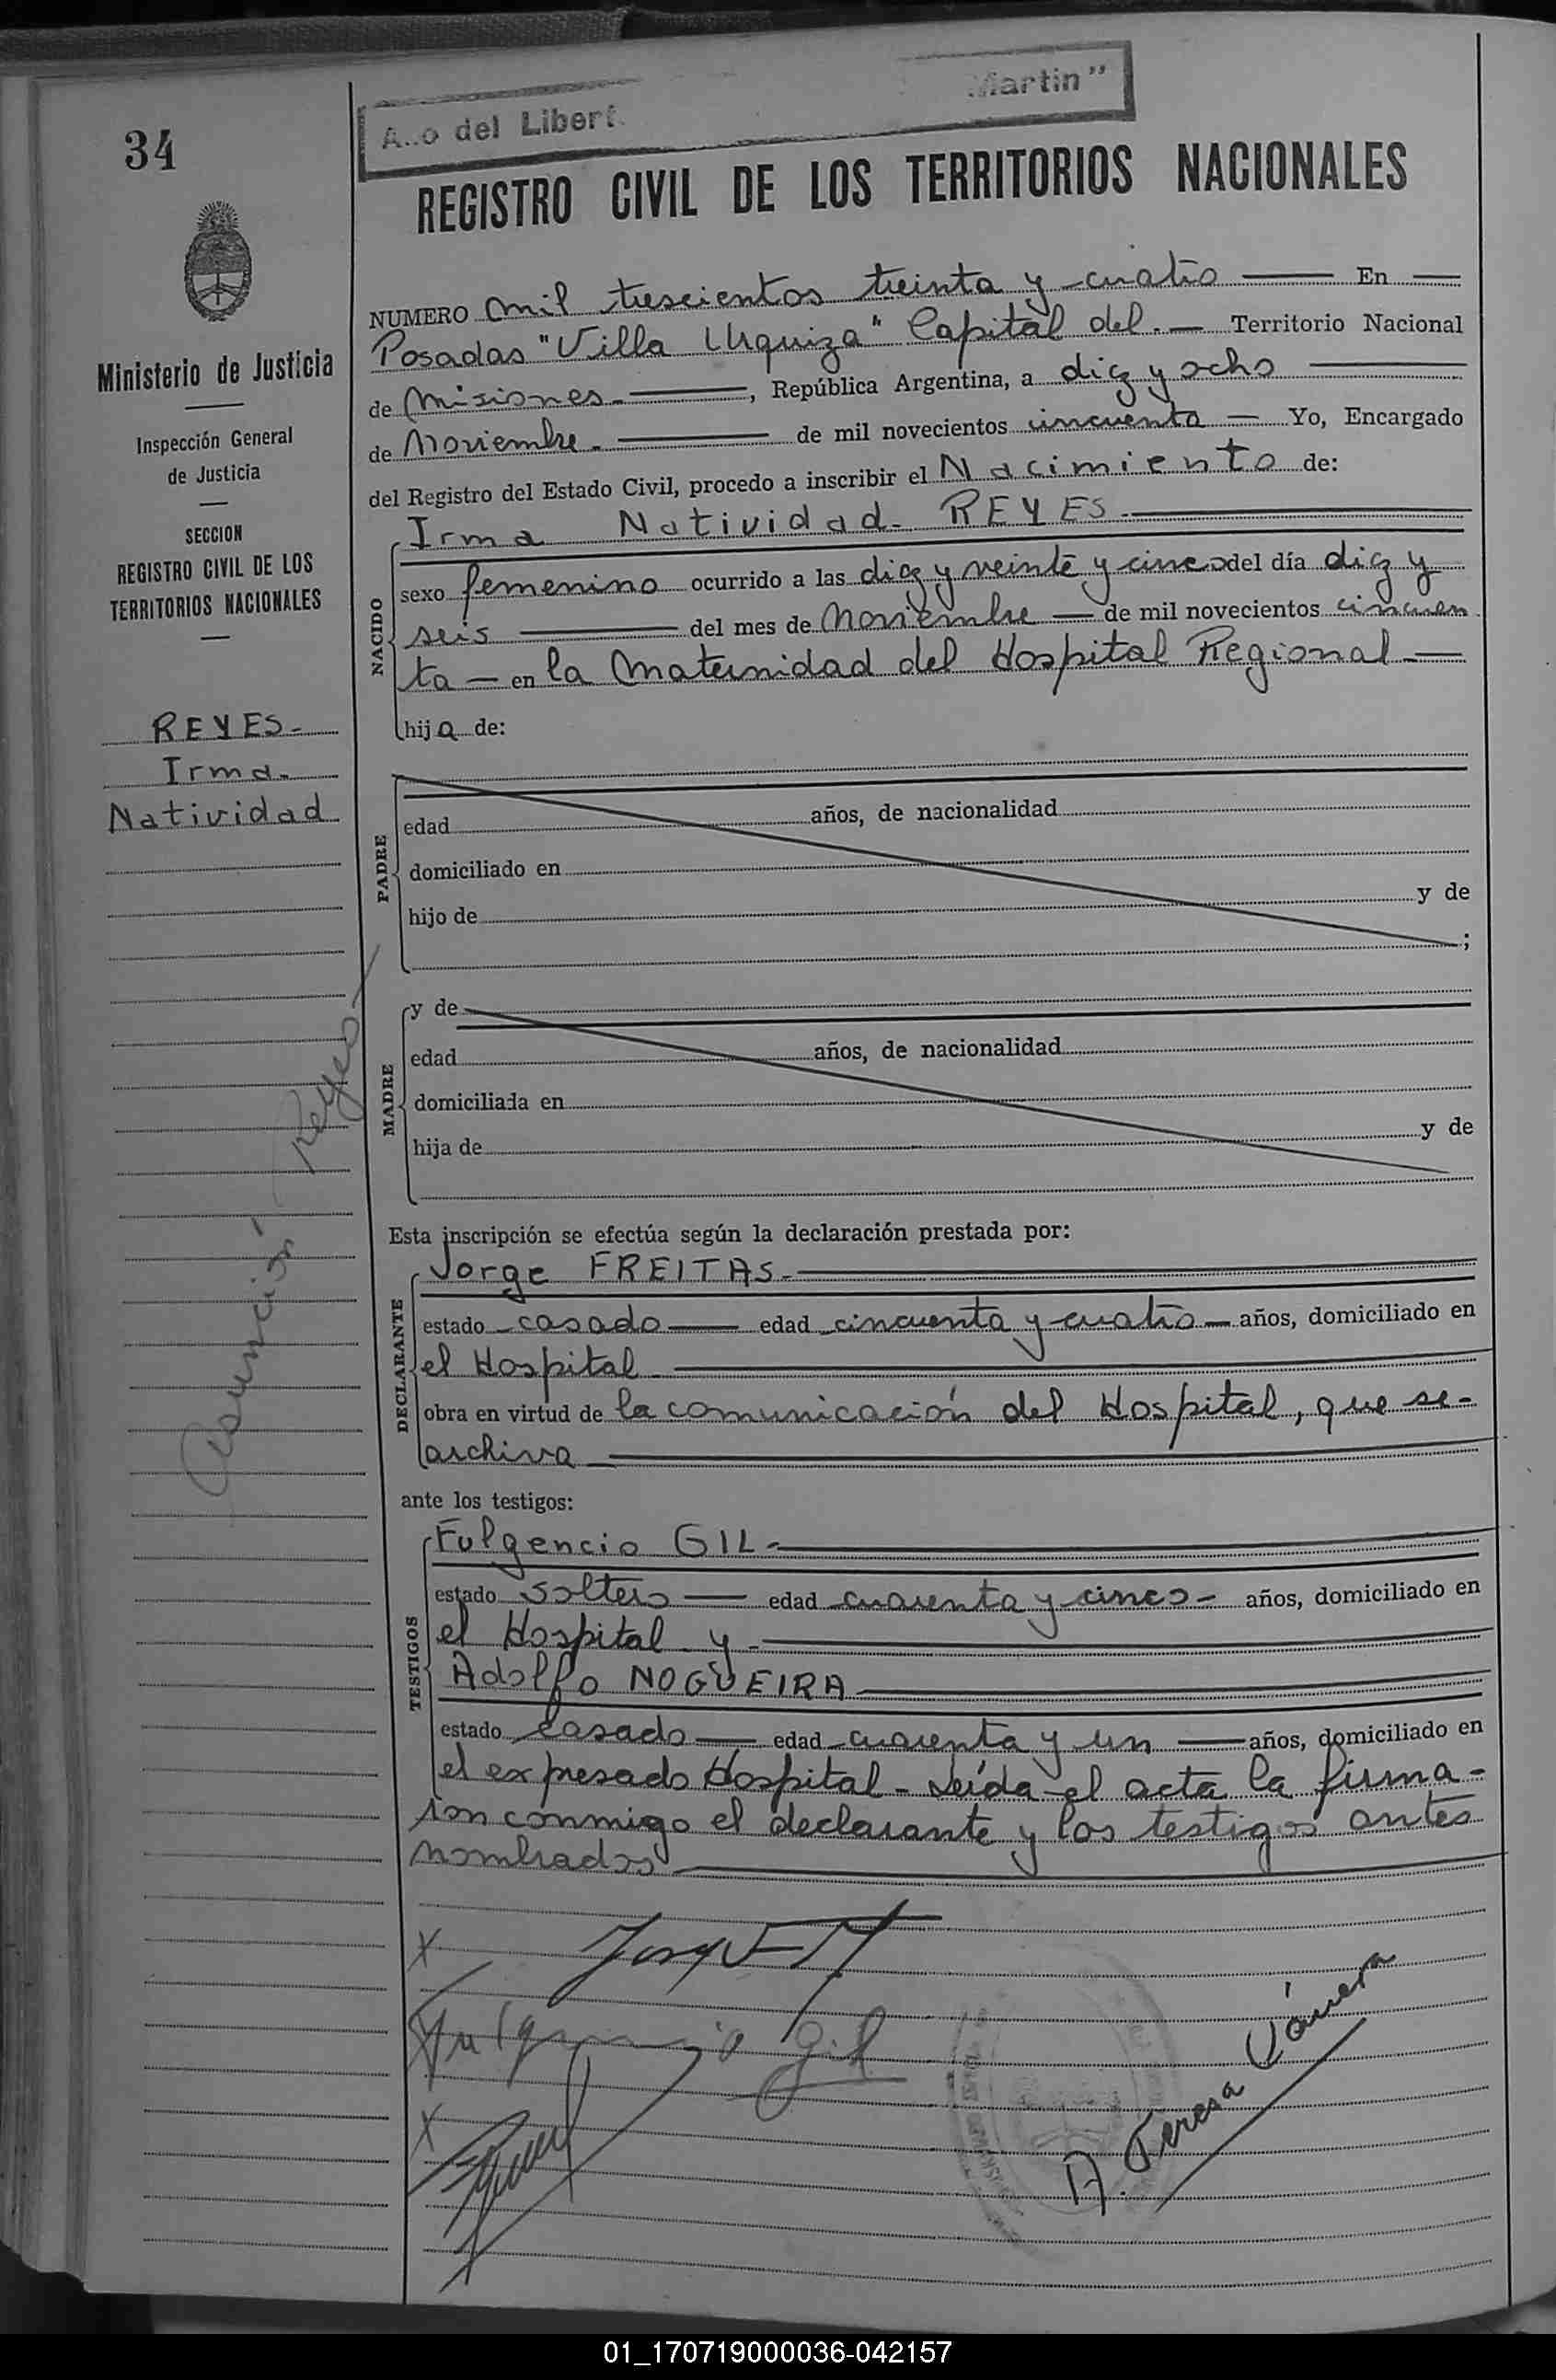 34
A..o del Libert. Martin"
REGISTRO CIVIL DE LOS TERRITORIOS NACIONALES
Ministerio de Justicia
Inspección General
de Justicia
SECCION
REGISTRO CIVIL DE LOS
TERRITORIOS NACIONALES
REYES-
Irma-
Natividad
Asunción Reyes
NUMERO mil trescientos treinta y cuatro En
Posadas "Villa Urquiza" Capital del.- Territorio Nacional
de Misiones.-, República Argentina, a diez y ocho
de Noviembre.- de mil novecientos cincuenta - Yo, Encargado
del Registro del Estado Civil, procedo a inscribir el Nacimiento de:
Irma Natividad- REYES-
NACIDO
sexo femenino ocurrido a las diez y veinte y cinco del día diez y
seis del mes de Noviembre - de mil novecientos cincuen
ta - en la Maternidad del Hospital Regional-
hija de:
PADRE
edad años, de nacionalidad
domiciliado en
hijo de y de
;
MADRE
y de
edad años, de nacionalidad
domiciliada en
hija de y de
Esta inscripción se efectúa según la declaración prestada por:
DECLARANTE
Jorge FREITAS-
estado casado edad cincuenta y cuatro - años, domiciliado en
el Hospital
obra en virtud de la comunicación del Hospital, que se-
archiva
ante los testigos:
TESTIGOS
Fulgencio GIL-
estado soltero edad cuarenta y cinco - años, domiciliado en
el Hospital y-
Adolfo NOGÜEIRA
estado casado edad cuarenta y un años, domiciliado en
el expresado Hospital - Leída el acta la firma-
ron conmigo el declarante y los testigos antes
nombrados
X
Fulgencio Gil
X
A. Teresa Vánera
01_170719000036-042157